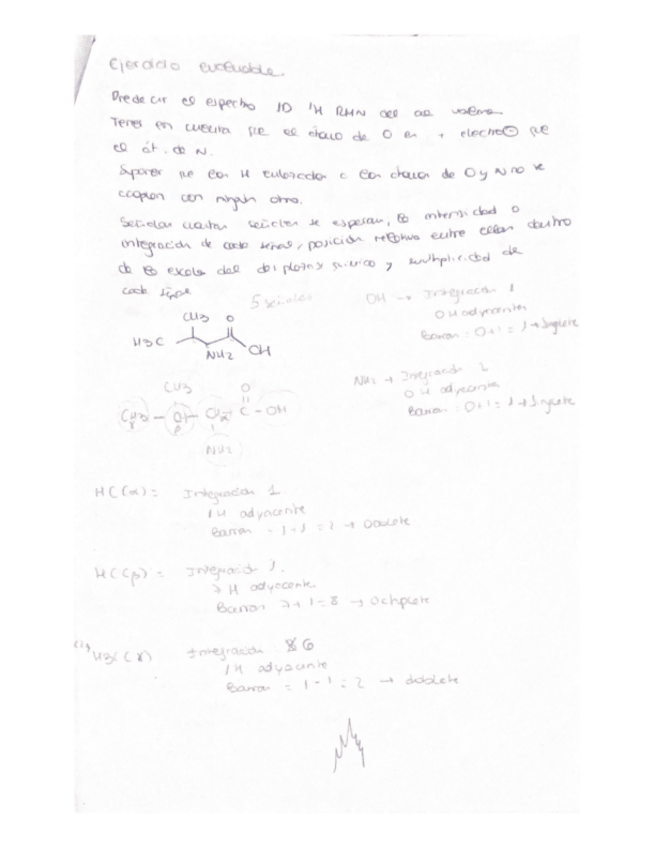 Ejercicio evaluable.
Predecir el espectro 1D ¹H RMN del de valina
Tener en cuenta que el enlace de O es + electro⊖ que
el át. de N.
Suponer que los H enlazados a los átomos de O y N no se
acoplan con ningún otro.
Señalar cuantas señales se esperan, la intensidad o
integración de cada señal, posición relativa entre ellas dentro
de la escala del desplaz químico y multiplicidad de
cada
5 señales
OH → Integración 1
0 H adyacentes
Barras = 0+1 = 1 → Singlete
CH3 O
H3C
NH2 OH
NH2 → Integración 2
0 H adyacente
Barras = 0+1 = 1 → Singlete
CH3 O
CH3 - CH - CH - C - OH
γ β α
NH2
HC(α) = Integración 1
1 H adyacente
Barras = 1-1 = 2 → Doblete
H(Cβ) = Integración 1
7 H adyacente
Barras 7+1=8 → Octuplete
H3C(γ) Integración 6
1 H adyacente
Barras = 1-1 = 2 → doblete